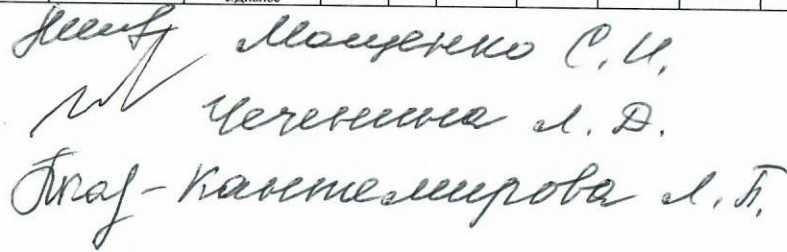 Мощенко С. И.
Чеченина Л. Д.
Кантемирова Л. П.